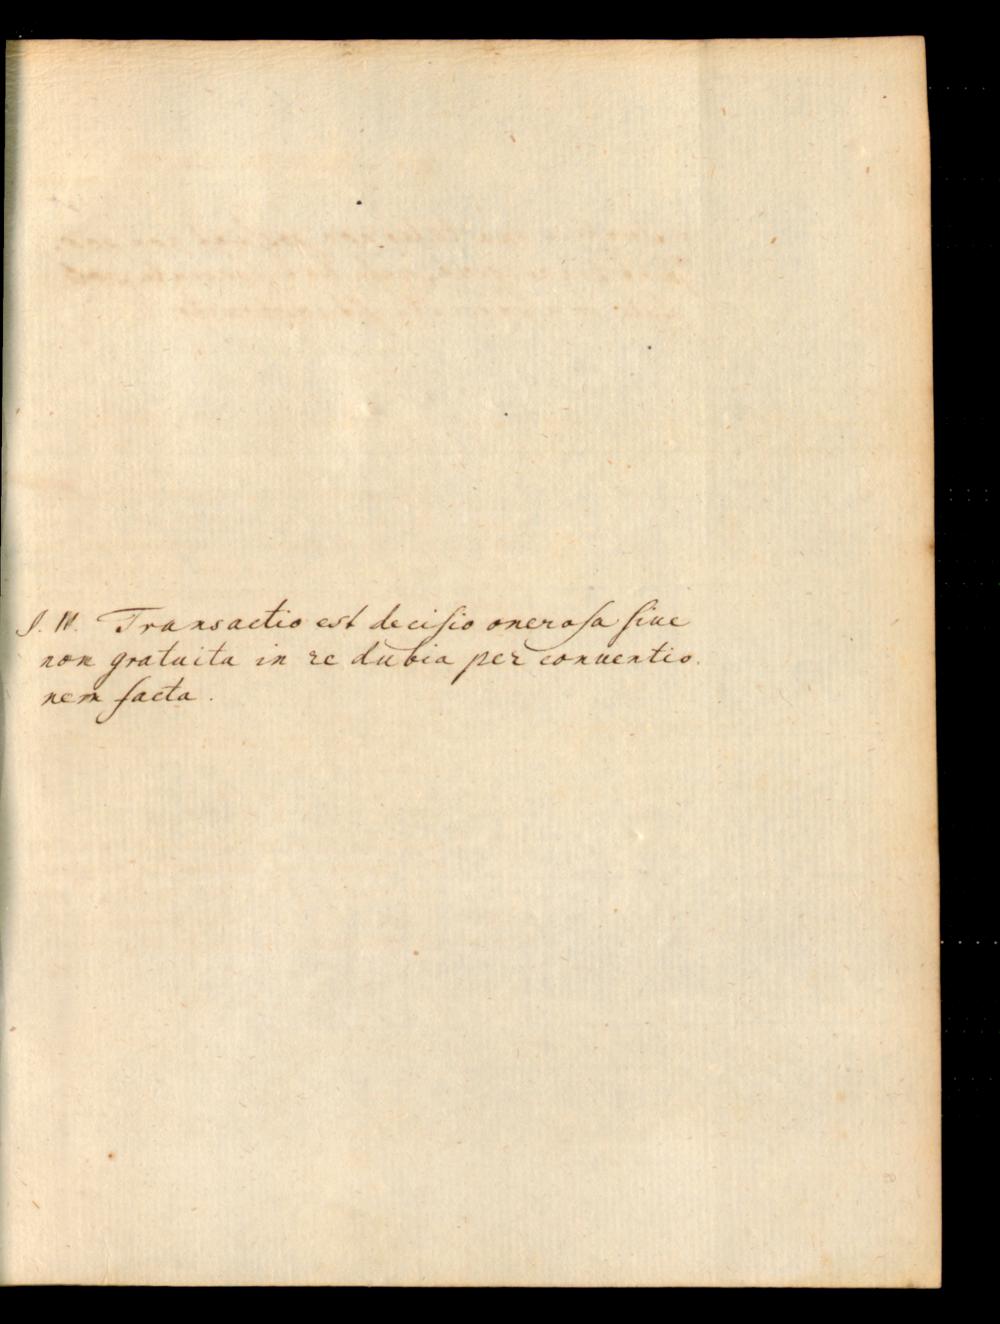 J. N. Transactio est decisio onerosa siue
non gratuita in re dubia per conuentio.
nem facta.